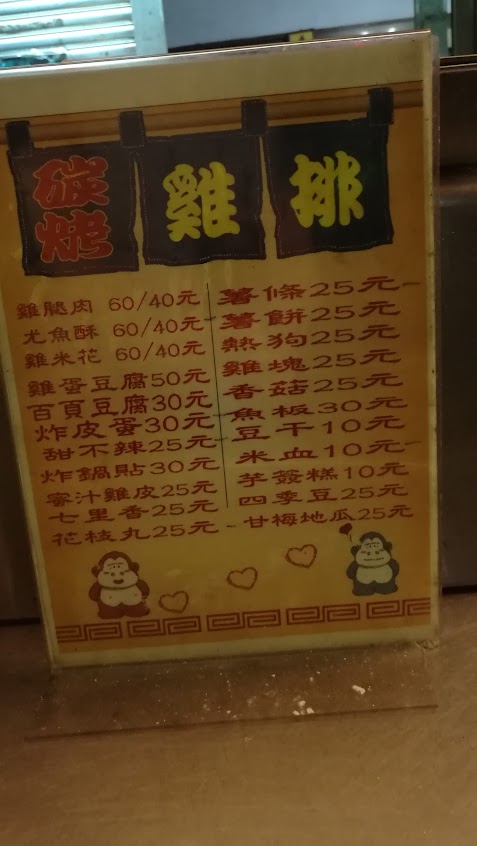 碳烤 雞排
雞腿肉 60/40元
尤魚酥 60/40元
雞米花 60/40元
雞蛋豆腐50元
百頁豆腐30元
炸皮蛋30元
甜不辣25元
炸鍋貼30元
蜜汁雞皮25元
七里香25元
花枝丸25元
薯條25元
薯餅25元
熱狗25元
雞塊25元
香菇25元
魚板30元
豆干10元
米血10元
芋簽糕10元
四季豆25元
甘梅地瓜25元